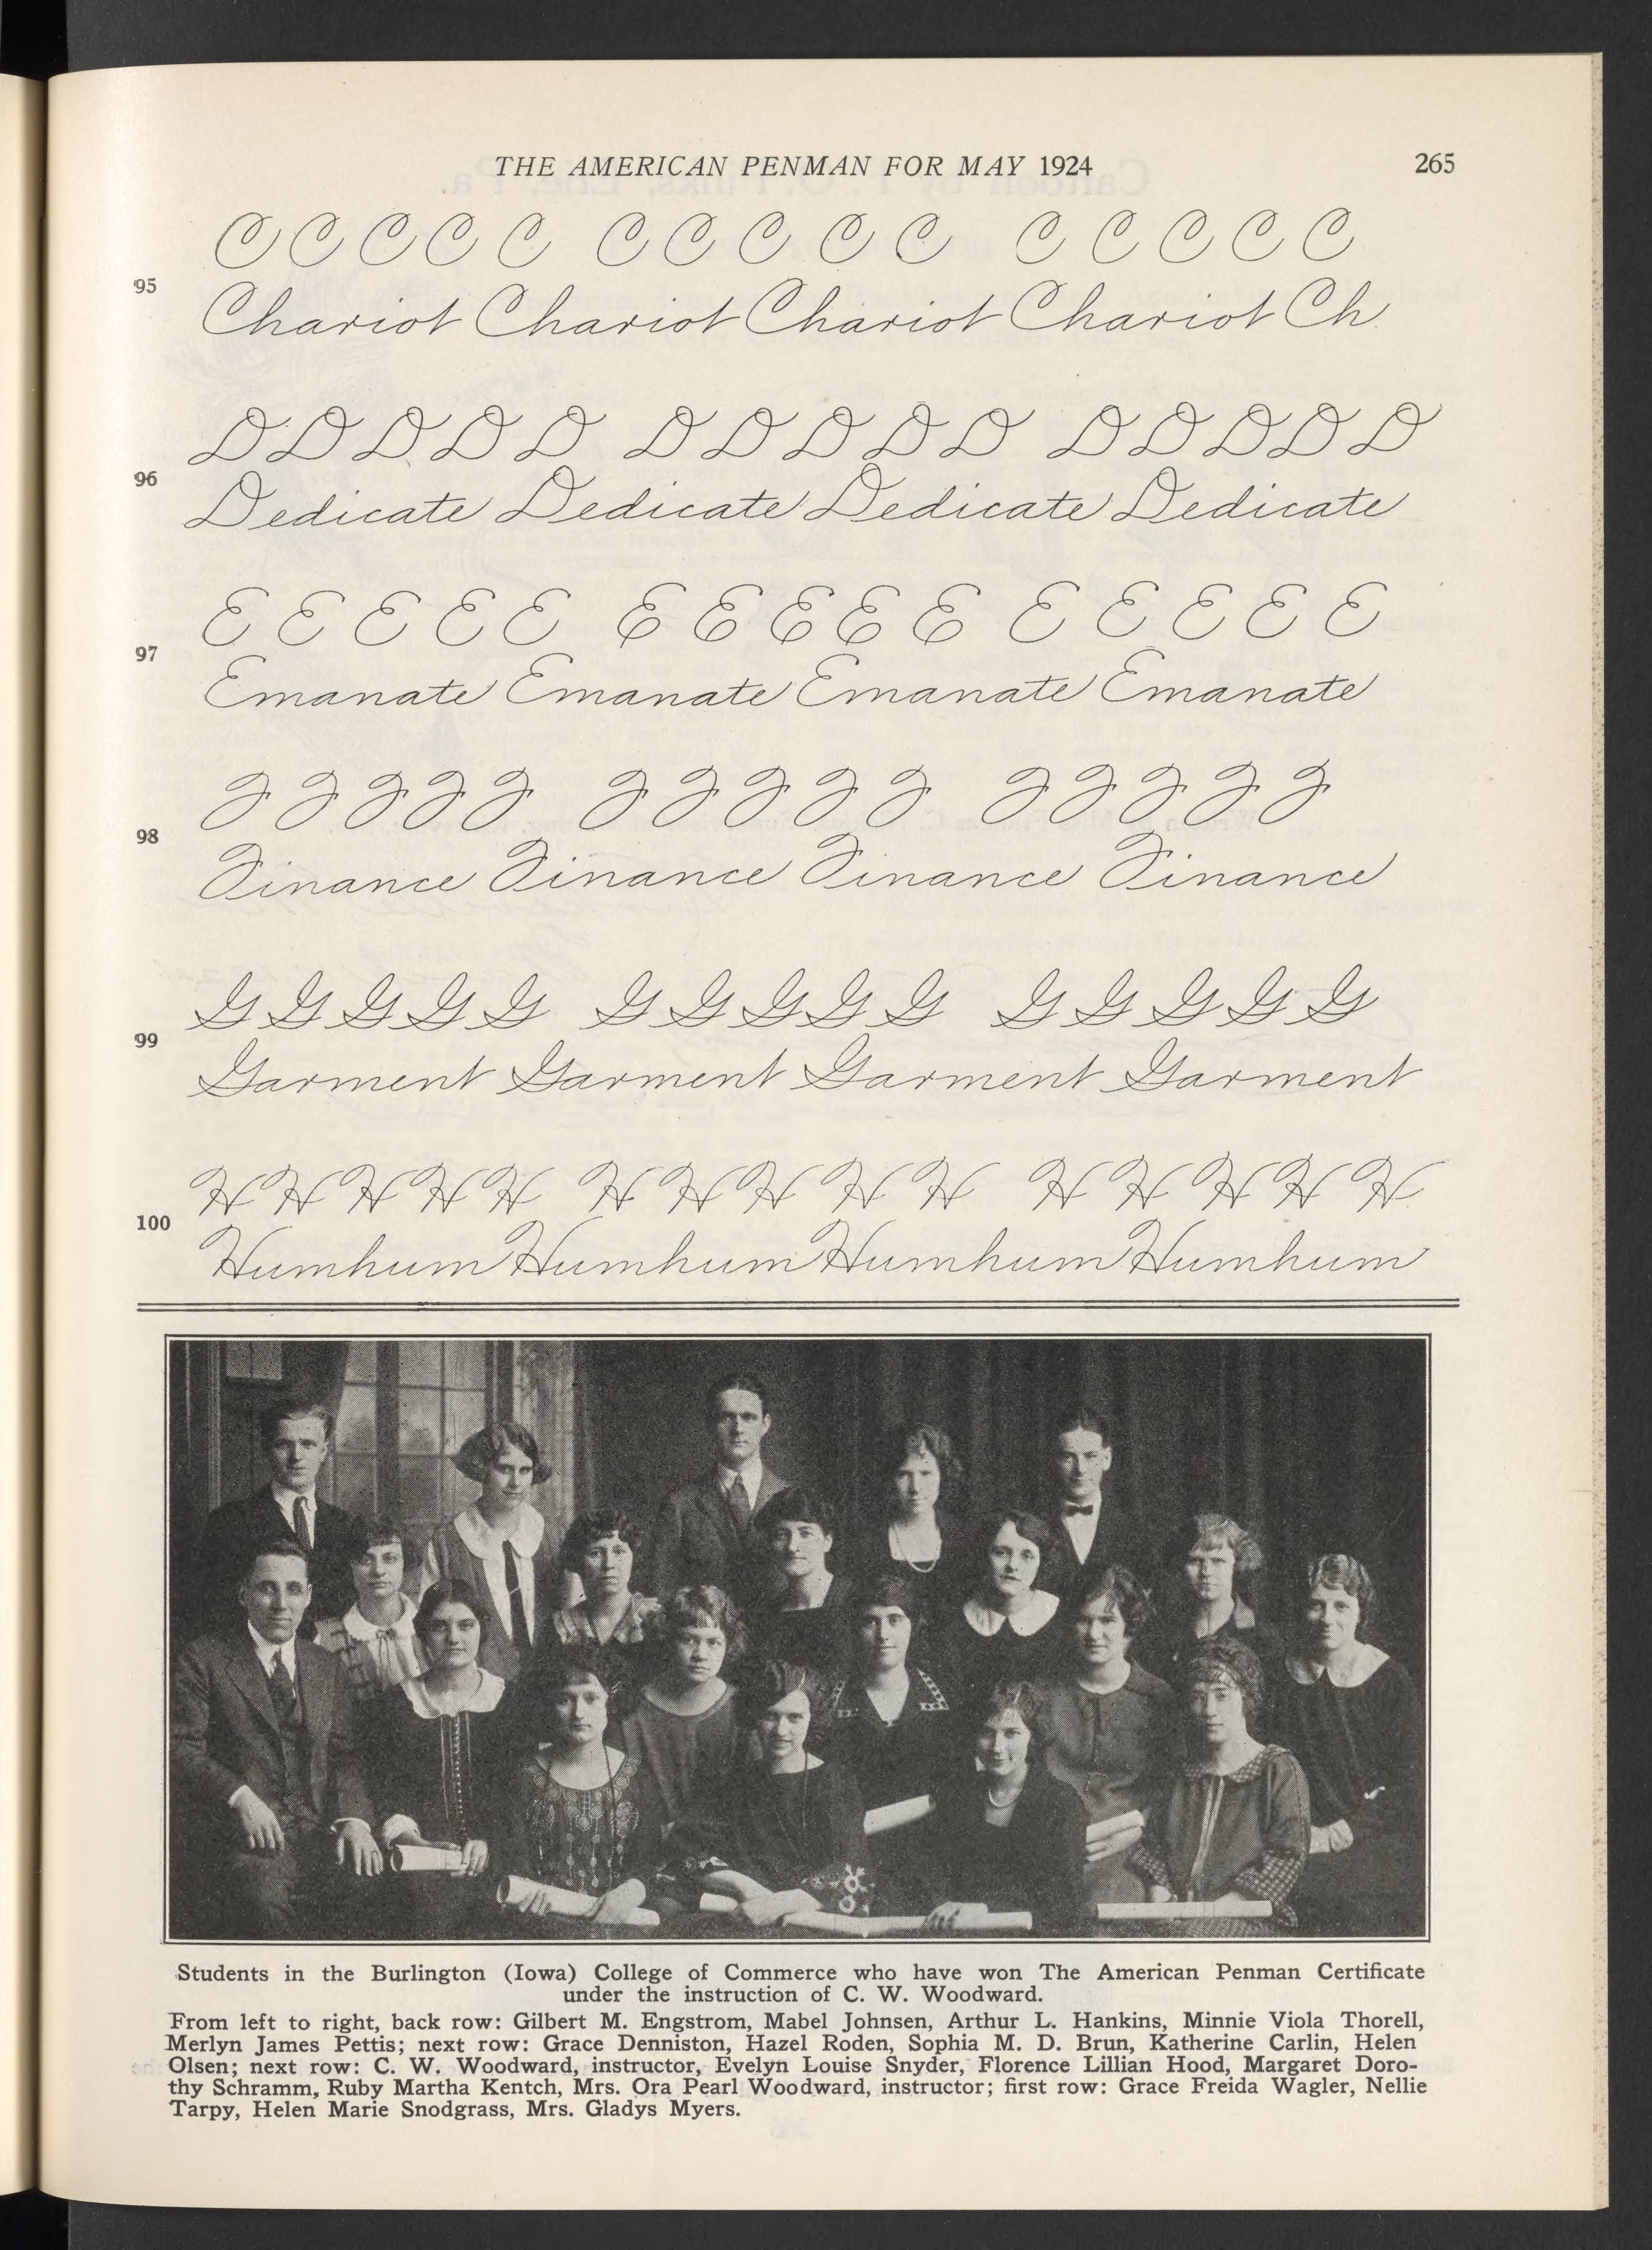 THE AMERICAN PENMAN FOR MAY 1924 265
C C C C C C C C C C C C C C C
95
Chariot Chariot Chariot Chariot Ch
D D D D D D D D D D D D D D D
96
Dedicate Dedicate Dedicate Dedicate
E E E E E E E E E E E E E E E
97
Emanate Emanate Emanate Emanate
F F F F F F F F F F F F F F F
98
Finance Finance Finance Finance
G G G G G G G G G G G G G G G
99
Garment Garment Garment Garment
H H H H H H H H H H H H H H H
100
Humhum Humhum Humhum Humhum
Students in the Burlington (Iowa) College of Commerce who have won The American Penman Certificate
under the instruction of C. W. Woodward.
From left to right, back row: Gilbert M. Engstrom, Mabel Johnsen, Arthur L. Hankins, Minnie Viola Thorell,
Merlyn James Pettis; next row: Grace Denniston, Hazel Roden, Sophia M. D. Brun, Katherine Carlin, Helen
Olsen; next row: C. W. Woodward, instructor, Evelyn Louise Snyder, Florence Lillian Hood, Margaret Doro-
thy Schramm, Ruby Martha Kentch, Mrs. Ora Pearl Woodward, instructor; first row: Grace Freida Wagler, Nellie
Tarpy, Helen Marie Snodgrass, Mrs. Gladys Myers.